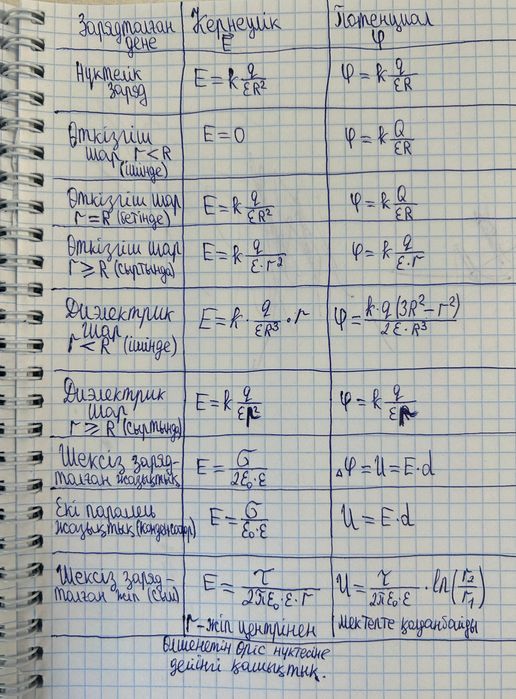 Зарядталған дене | Кернеулік E | Потенциал φ
Нүктелік заряд | E = k q/(εR²) | φ = k q/(εR)
Өткізгіш шар r < R (ішінде) | E = 0 | φ = k Q/(εR)
Өткізгіш шар r = R (бетінде) | E = k q/(εR²) | φ = k Q/(εR)
Өткізгіш шар r ≥ R (сыртында) | E = k q/(ε·r²) | φ = k q/(ε·r)
Диэлектрик шар r < R (ішінде) | E = k · q/(εR³) · r | φ = k·q(3R² − r²)/(2ε·R³)
Диэлектрик шар r ≥ R (сыртында) | E = k q/(εr²) | φ = k q/(εr)
Шексіз заряд-талған жазықтық | E = σ/(2ε₀·ε) | Δφ = U = E·d
Екі паралель жазықтық (конденсатор) | E = σ/(ε₀·ε) | U = E·d
Шексіз заряд-талған жіп (сым) | E = τ/(2πε₀·ε·r) | U = τ/(2πε₀·ε) · ln(r₂/r₁)
r – жіп центрінен | Мектепте қолданбайды
өлшенетін өріс нүктесіне
дейінгі қашықтық.